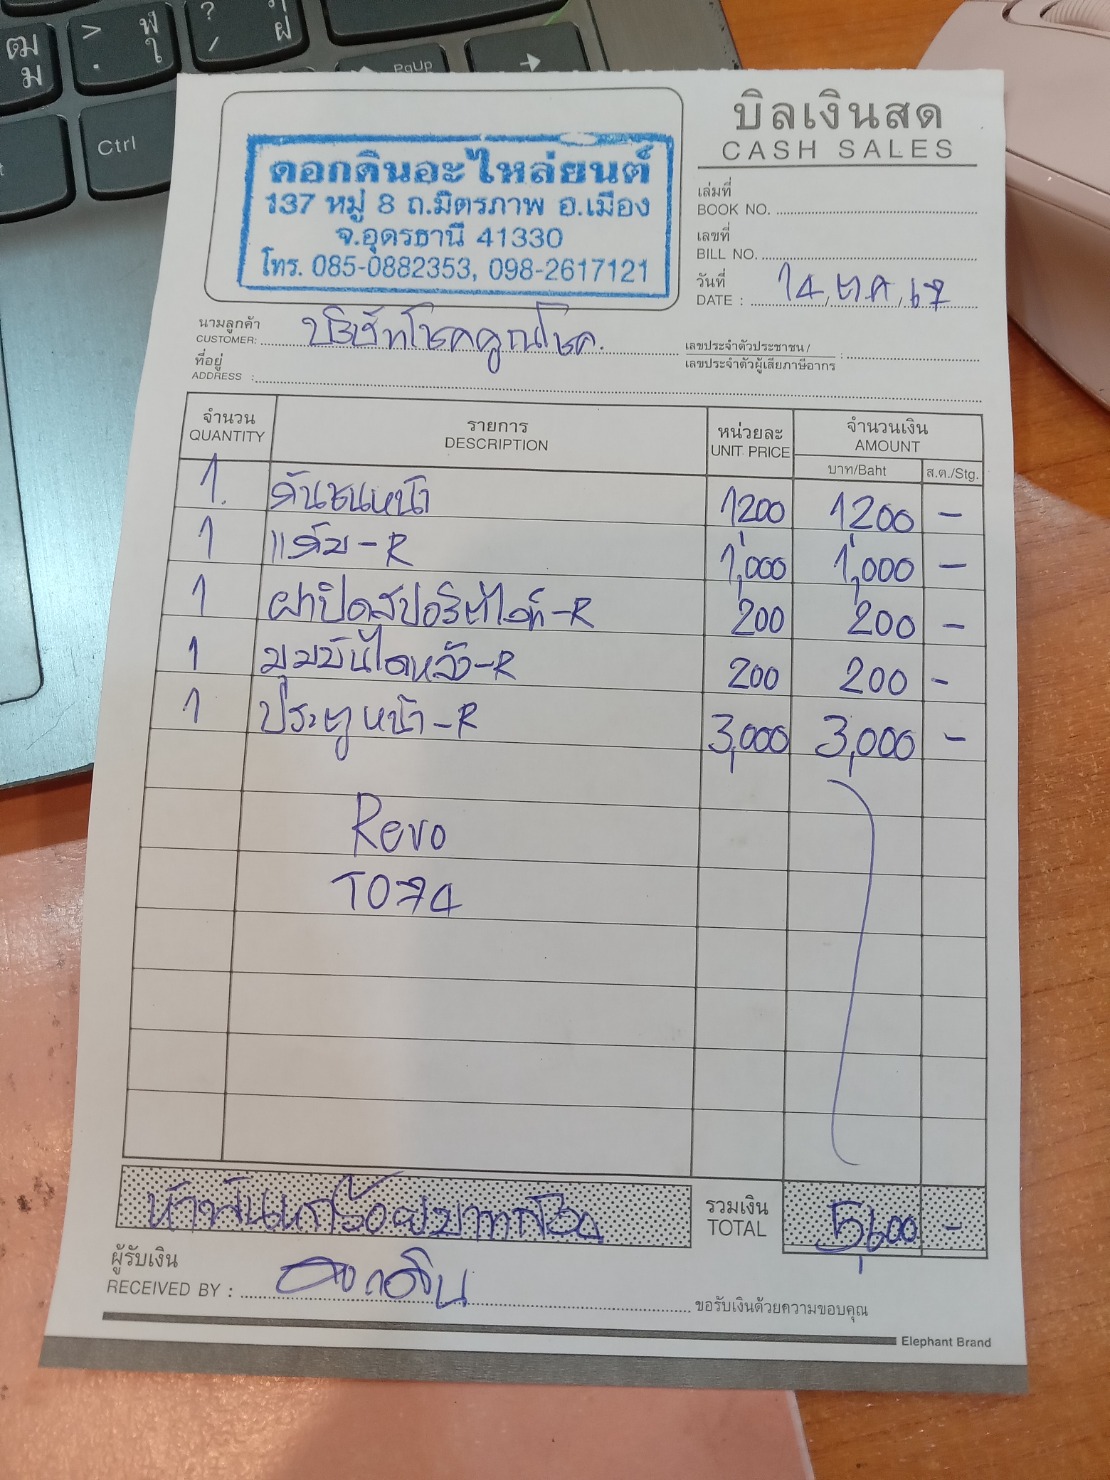 ฒ
ม
>
.
ฬ
ใ
?
/
ฦ
ฝ
PgUp
→
Ctrl
บิลเงินสด
CASH SALES
ดอกดินอะไหล่ยนต์
137 หมู่ 8 ถ.มิตรภาพ อ.เมือง
จ.อุดรธานี 41330
โทร. 085-0882353, 098-2617121
เล่มที่
BOOK NO.
เลขที่
BILL NO.
วันที่
DATE : 14, ต.ค, 67
นามลูกค้า
CUSTOMER: บริษัทโชคคูณโชค.
เลขประจำตัวประชาชน /
เลขประจำตัวผู้เสียภาษีอากร :
ที่อยู่
ADDRESS :
จำนวน รายการ หน่วยละ จำนวนเงิน
QUANTITY DESCRIPTION UNIT PRICE AMOUNT
บาท/Baht ส.ต./Stg.
1. กันชนหน้า 1200 1200 -
1 แก้ม-R 1,000 1,000 -
1 ฝาปิดสปอร์ตไลท์-R 200 200 -
1 มุมบันไดหลัง-R 200 200 -
1 ประตูหน้า-R 3,000 3,000 -
Revo
T074
ห้าพันหกร้อยบาทถ้วน รวมเงิน 5,600 -
TOTAL
ผู้รับเงิน
RECEIVED BY : ดอกดิน ขอรับเงินด้วยความขอบคุณ
Elephant Brand